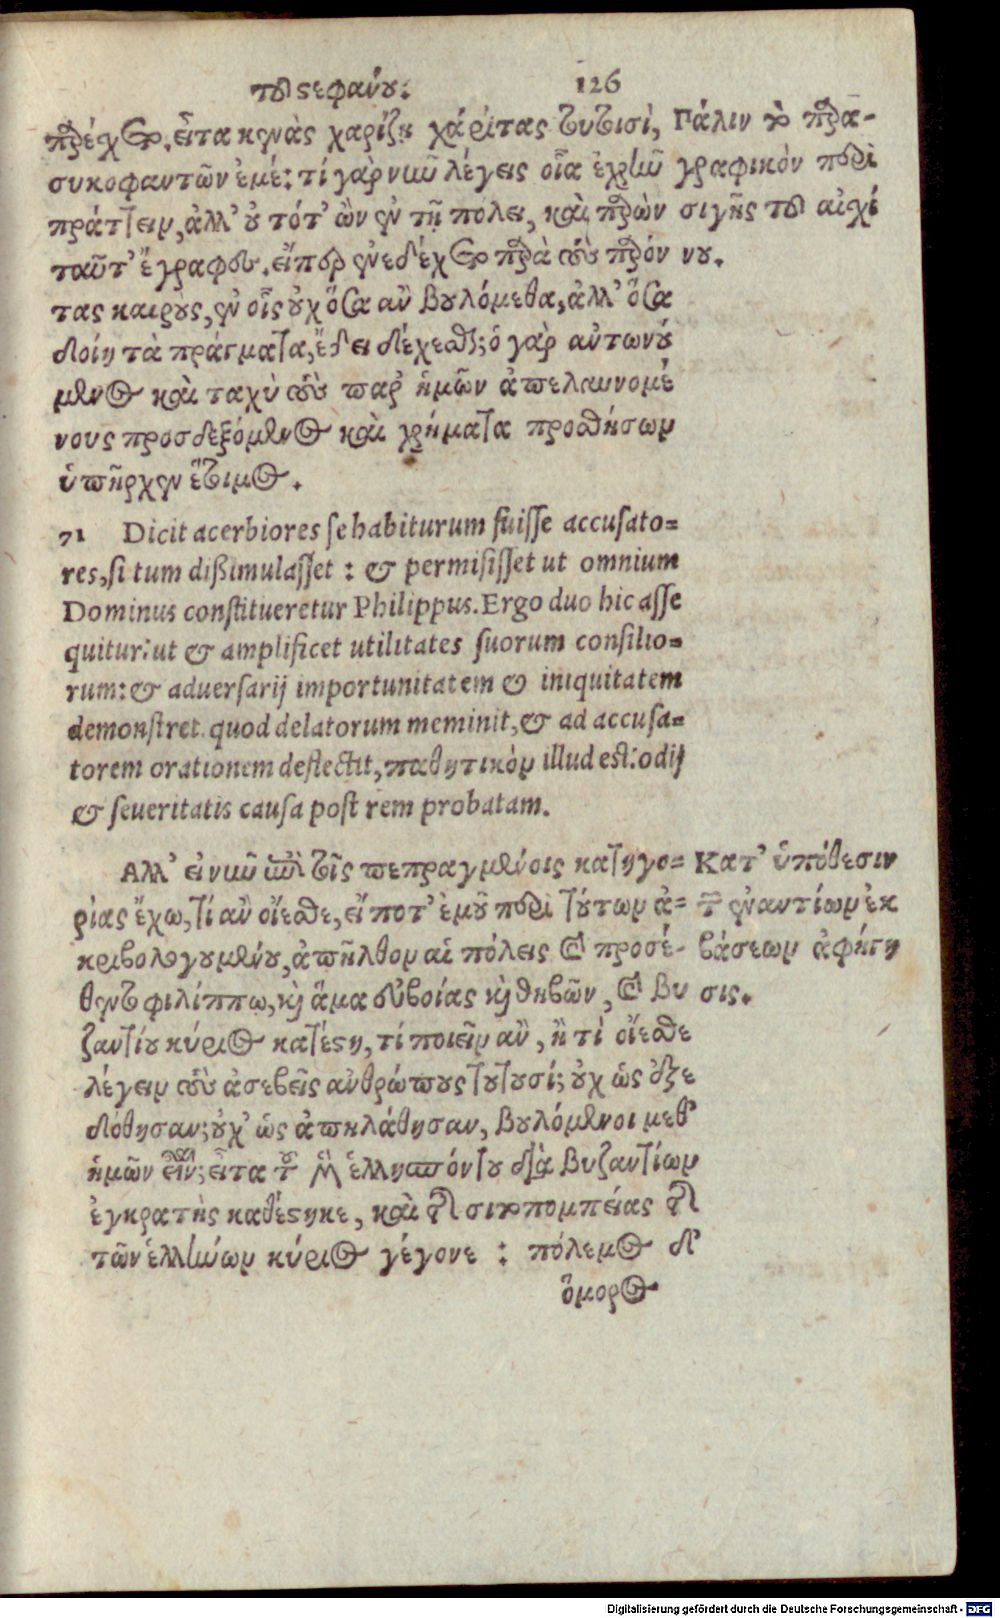 τοῦ στεφάνου. 126
παρέχων, εἶτα κενὰς χαρίζῃ χάριτας τουτοισὶ,
συκοφαντῶν ἐμέ: τί γὰρ νῦν λέγεις οἷα ἐχρῆν
πράττειν, ἀλλ' οὐ τότ' ὢν ἐν τῇ πόλει, καὶ παρὼν
ταῦτ' ἔγραφες. εἴπερ ἐνεδέχετο παρὰ τοὺς παρόν
τας καιρους, ἐν οἷς οὐχ ὅσα ἂν βουλόμεθα, ἀλλ' ὅσα
δοίη τὰ πράγματα, ἔδει δέχεσθαι; ὁ γὰρ αὐτωνού
μενος καὶ ταχὺ τοὺς παρ' ἡμῶν ἀπελαυνομέ
νους προσδεξόμενος καὶ χρήματα προσθήσων
ὑπῆρχεν ἕτοιμος.
Πάλιν τὸ παρα-
γραφικὸν περὶ
σιγῆς τοῦ αἰσχί
νου.
71 Dicit acerbiores se habiturum fuisse accusato=
res, si tum dißimulasset : & permisisset ut omnium
Dominus constitueretur Philippus. Ergo duo hic asse
quitur: ut & amplificet utilitates suorum consilio=
rum: & adversarij importunitatem & iniquitatem
demonstret. quod delatorum meminit, & ad accusa=
torem orationem deflectit, παθητικὸν illud est: odij
& severitatis causa post rem probatam.
Αλλ' εἰ νῦν ἐπὶ τοῖς πεπραγμένοις κατηγο=
ρίας ἔχω, τί ἂν οἴεσθε, εἴ ποτ' ἐμοῦ περὶ τούτων ἀ=
κριβολογουμένου, ἀπῆλθον αἱ πόλεις καὶ προσέ-
θεντο φιλίππω, καὶ ἅμα εὐβοίας καὶ θηβῶν, καὶ βυ
ζαντίου κύριος κατέστη, τί ποιεῖν ἂν, ἢ τί οἴεσθε
λέγειν τοὺς ἀσεβεῖς ἀνθρώπους τουτουσί; οὐχ ὡς ἐξε
δόθησαν; οὐχ' ὡς ἀπηλάθησαν, βουλόμενοι μεθ'
ἡμῶν εἶναι; εἶτα τοῦ μὲν ἑλλησπόντου διὰ βυζαντίων
ἐγκρατὴς καθέστηκε, καὶ τῆς σιτοπομπείας τῆς
τῶν ἑλλήνων κύριος γέγονε : πόλεμος δ'
ὅμορος
Κατ' ὑπόθεσιν
τῶν ἐναντίων ἐκ
βάσεων ἀφήγη
σις.
Digitalisierung gefördert durch die Deutsche Forschungsgemeinschaft - DFG